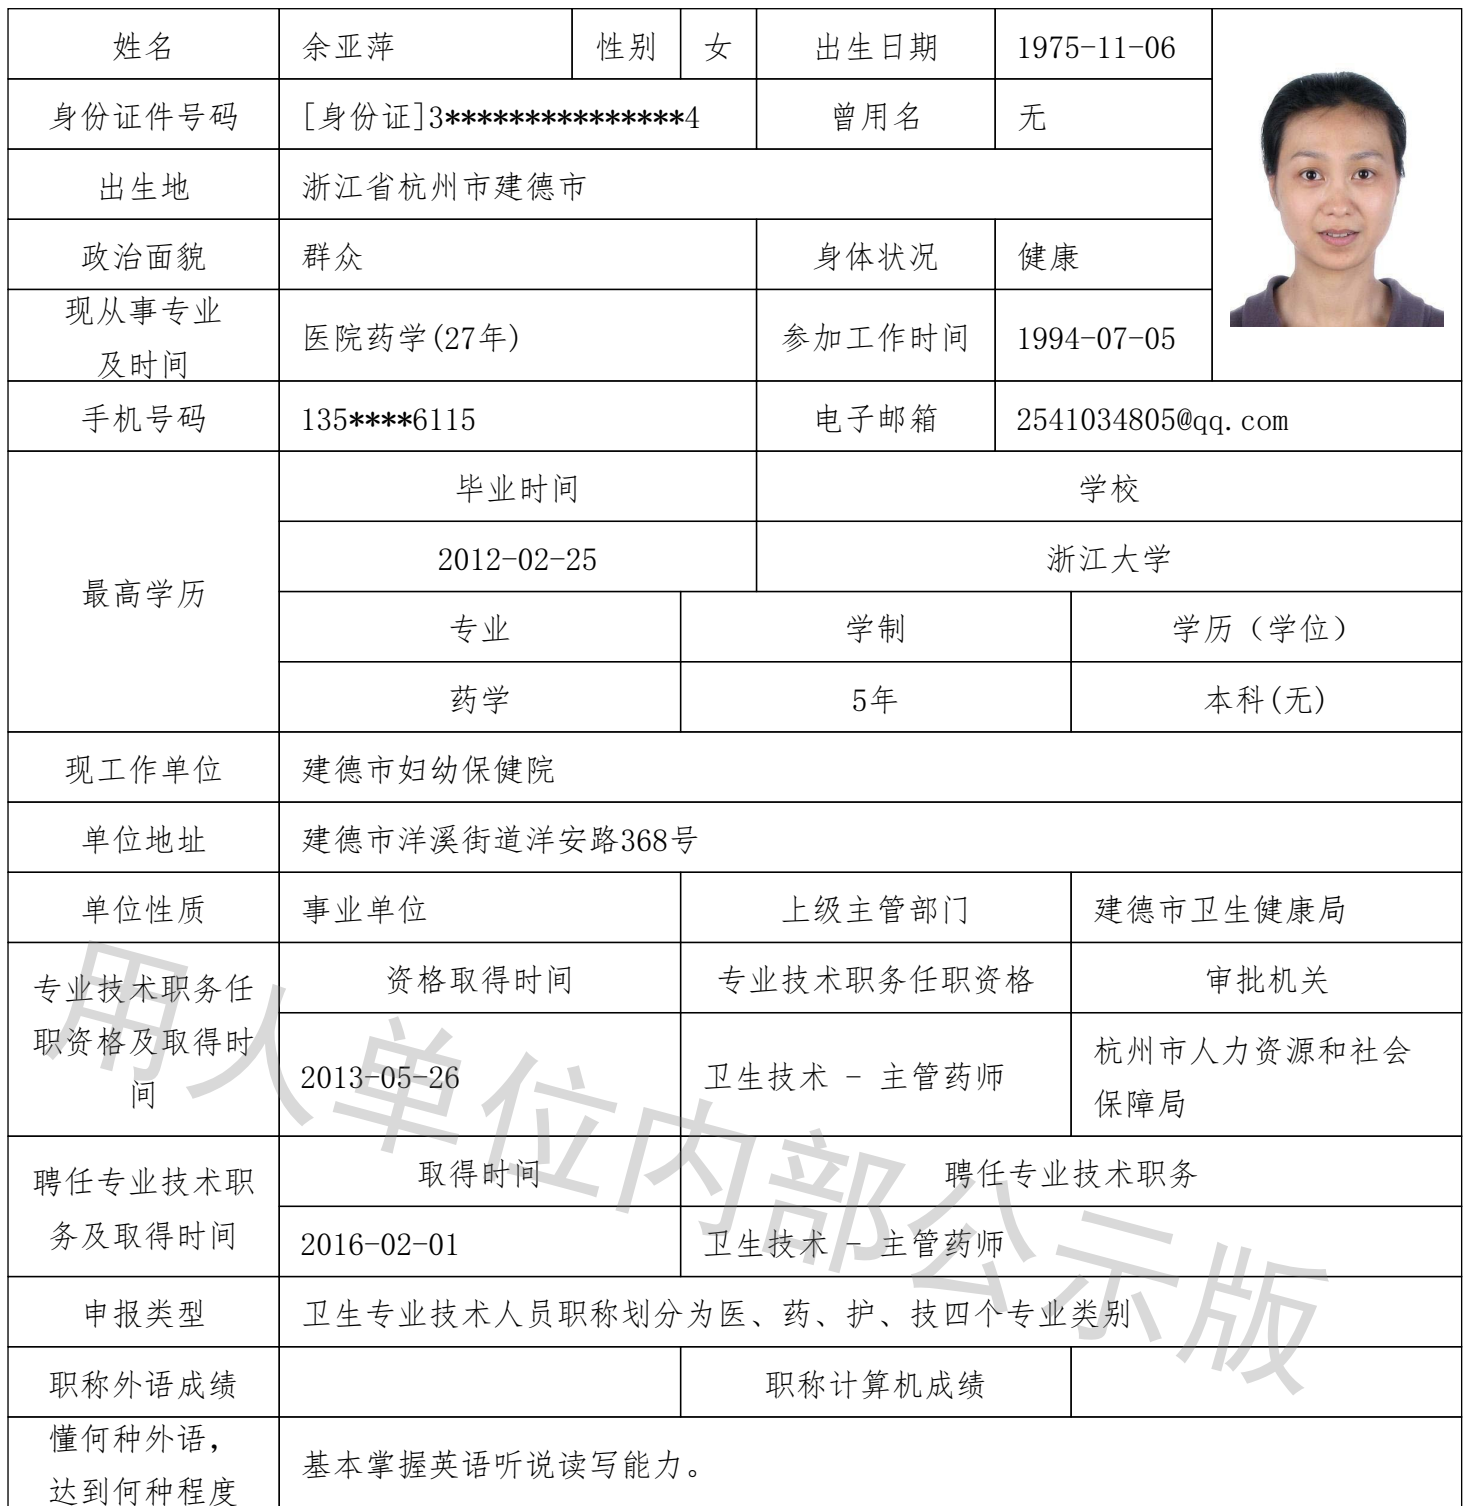 姓名 余亚萍 性别 女 出生日期 1975-11-06
身份证件号码 [身份证]3***************4 曾用名 无
出生地 浙江省杭州市建德市
政治面貌 群众 身体状况 健康
现从事专业
及时间
医院药学(27年) 参加工作时间 1994-07-05
手机号码 135****6115 电子邮箱 2541034805@qq.com
最高学历
毕业时间 学校
2012-02-25 浙江大学
专业 学制 学历（学位）
药学 5年 本科(无)
现工作单位 建德市妇幼保健院
单位地址 建德市洋溪街道洋安路368号
单位性质 事业单位 上级主管部门 建德市卫生健康局
专业技术职务任
职资格及取得时
间
资格取得时间 专业技术职务任职资格 审批机关
2013-05-26 卫生技术 - 主管药师
杭州市人力资源和社会
保障局
聘任专业技术职
务及取得时间
取得时间 聘任专业技术职务
2016-02-01 卫生技术 - 主管药师
申报类型 卫生专业技术人员职称划分为医、药、护、技四个专业类别
职称外语成绩 职称计算机成绩
懂何种外语，
达到何种程度
基本掌握英语听说读写能力。
用人单位内部公示版